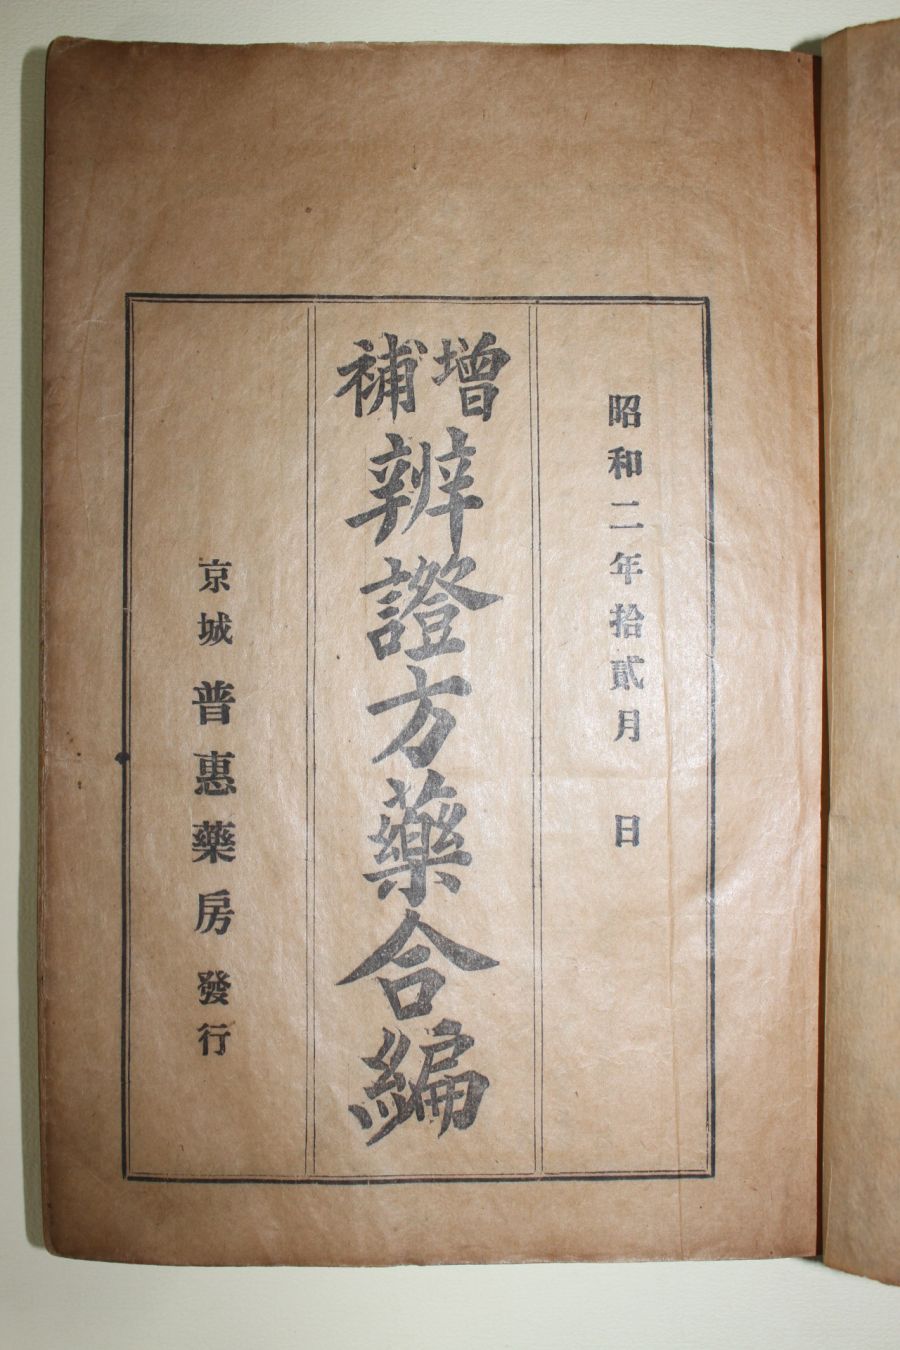 昭和二年拾貳月　日
增補
辨證方藥合編
京城 普惠藥房 發行